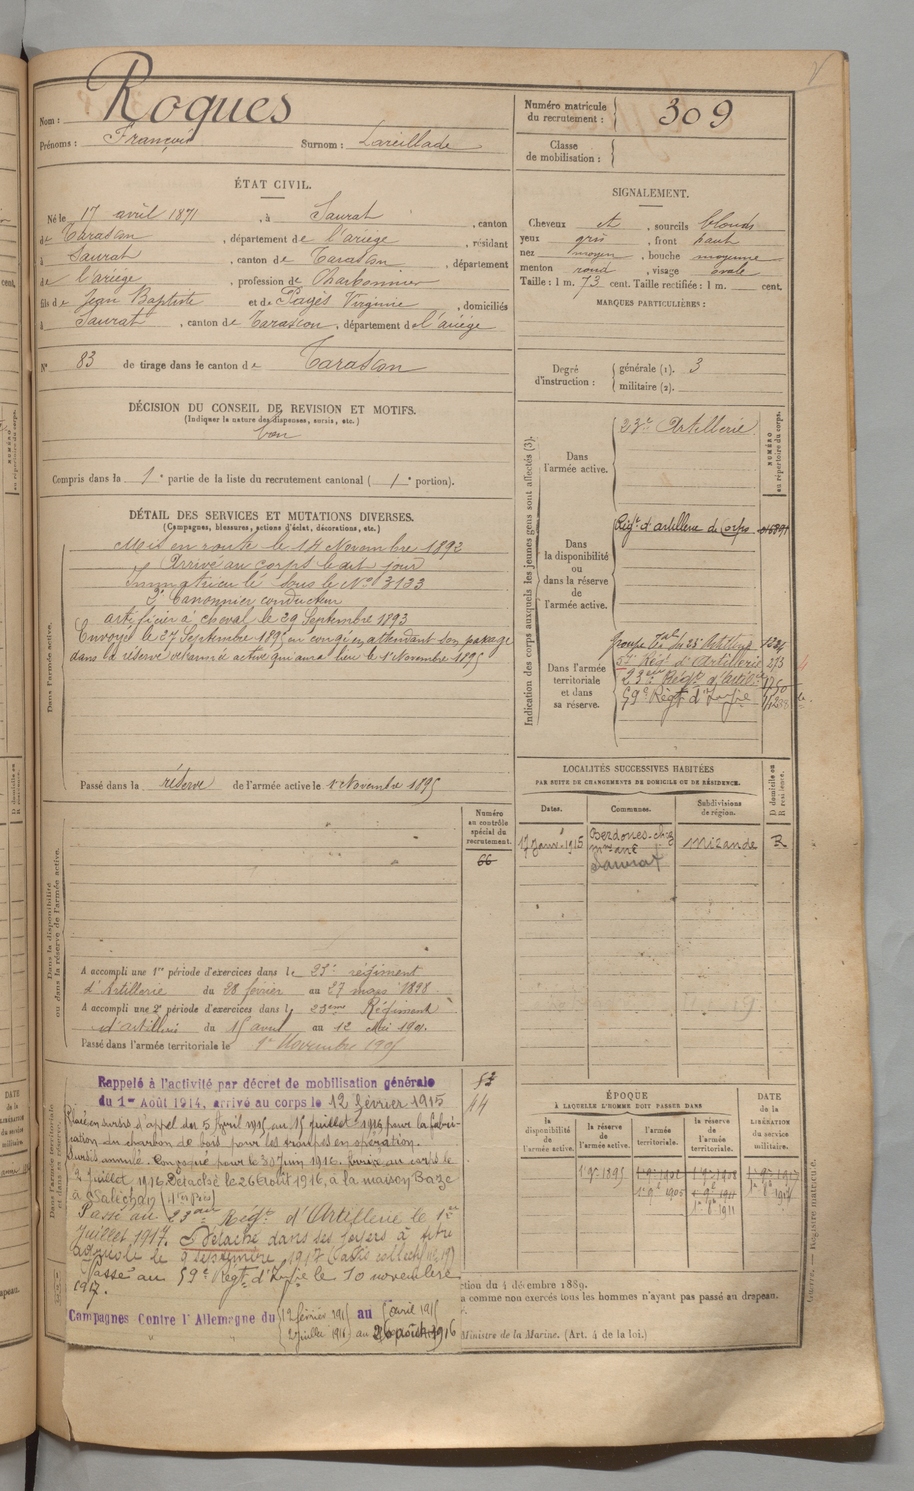 Nom : Roques
Prénoms : François Surnom : Lareillade
Numéro matricule du recrutement : 309
Classe de mobilisation :
ÉTAT CIVIL.
Né le 17 avril 1871, à Saurat, canton
de Tarascon, département de l'ariège, résidant
à Saurat, canton de Tarascon, département
de l'ariège, profession de Charbonnier
fils de Jean Baptiste et de Pagès Virginie, domiciliés
à Saurat, canton de Tarascon, département de l'ariège
N° 83 de tirage dans le canton de Tarascon
DÉCISION DU CONSEIL DE REVISION ET MOTIFS.
(Indiquer la nature des dispenses, sursis, etc.)
bon
Compris dans la 1e partie de la liste du recrutement cantonal (1e portion).
SIGNALEMENT.
Cheveux et, sourcils blonds
yeux gris, front haut
nez moyen, bouche moyenne
menton rond, visage ovale
Taille : 1 m. 73 cent. Taille rectifiée : 1 m. cent.
MARQUES PARTICULIÈRES :
Degré d'instruction : générale (1). 3
militaire (2).
DÉTAIL DES SERVICES ET MUTATIONS DIVERSES.
(Campagnes, blessures, actions d'éclat, décorations, etc.)
Dans l'armée active.
Mis en route le 14 Novembre 1892
Arrivé au corps le dit jour
Immatriculé sous le No 3133
2e Canonnier conducteur
artificier à cheval le 29 Septembre 1893
Envoyé le 27 Septembre 1895 en congé en attendant son passage
dans la réserve de l'armée active qui aura lieu le 1er Novembre 1895
Passé dans la réserve de l'armée active le 1er Novembre 1895
Indication des corps auxquels les jeunes gens sont affectés (3).
NUMÉRO au répertoire du corps.
Dans l'armée active.
23e Artillerie
Dans la disponibilité ou dans la réserve de l'armée active.
Régt d'artillerie de Corps
Dans l'armée territoriale et dans sa réserve.
57e Rég. d'Artillerie 273
23ème Régt d'Artie
59e Régt d'Infie
LOCALITÉS SUCCESSIVES HABITÉES
PAR SUITE DE CHANGEMENTS DE DOMICILE OU DE RÉSIDENCE.
Dates. Communes. Subdivisions de région. D domicile ou R résidence.
17 Janv. 1915 Berdoues Mirande R
Saurat
Numéro au contrôle spécial du recrutement.
66
Dans la disponibilité ou dans la réserve de l'armée active.
A accompli une 1re période d'exercices dans le 23e régiment
d'Artillerie du 28 février au 27 mars 1898
A accompli une 2e période d'exercices dans l 23eme Régiment
d'artillerie du 15 avril au 12 Mai 1901
Passé dans l'armée territoriale le 1er Novembre 1905
52
44
Rappelé à l'activité par décret de mobilisation générale
du 1er Août 1914, arrivé au corps le 12 février 1915
Placé en sursis d'appel du 5 Avril 1915 au 15 juillet 1916 pour la fabri-
cation du charbon de bois pour les troupes en opération.
Sursis annulé. Convoqué pour le 30 Juin 1916. Arrivé au corps le
2 juillet 1916. Détaché le 26 Août 1916, à la maison Baze
à Saléchan (Htes Pyr.)
Passé au 23eme Régt d'Artillerie le 1er
Juillet 1917. Détaché dans ses foyers à titre
agricole le 9 septembre 1917
Passé au 59e Régt d'Infie le 10 novembre
1917.
Campagnes Contre l'Allemagne du 12 février 1915 au 5 avril 1915
2 juillet 1916 au 26 août 1916
ÉPOQUE
À LAQUELLE L'HOMME DOIT PASSER DANS
la disponibilité de l'armée active. la réserve de l'armée active. l'armée territoriale. la réserve de l'armée territoriale. DATE de la LIBÉRATION du service militaire.
1er 9bre 1895
1er 9bre 1905
1er 8bre 1911
ction du 4 décembre 1889.
a comme non exercés tous les hommes n'ayant pas passé au drapeau.
Ministre de la Marine. (Art. 4 de la loi.)